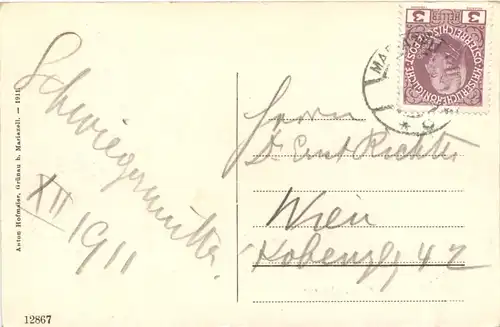 Schwiegermutter.
XII/1911
Anton Hofmeier, Grünau b. Mariazell. — 1911.
12867
Herrn
Dr. Ernst Richter
Wien
Kobenzlg 42
3 3
KAISERLICHE KÖNIGLICHE ÖSTERREICHISCHE POST
MA